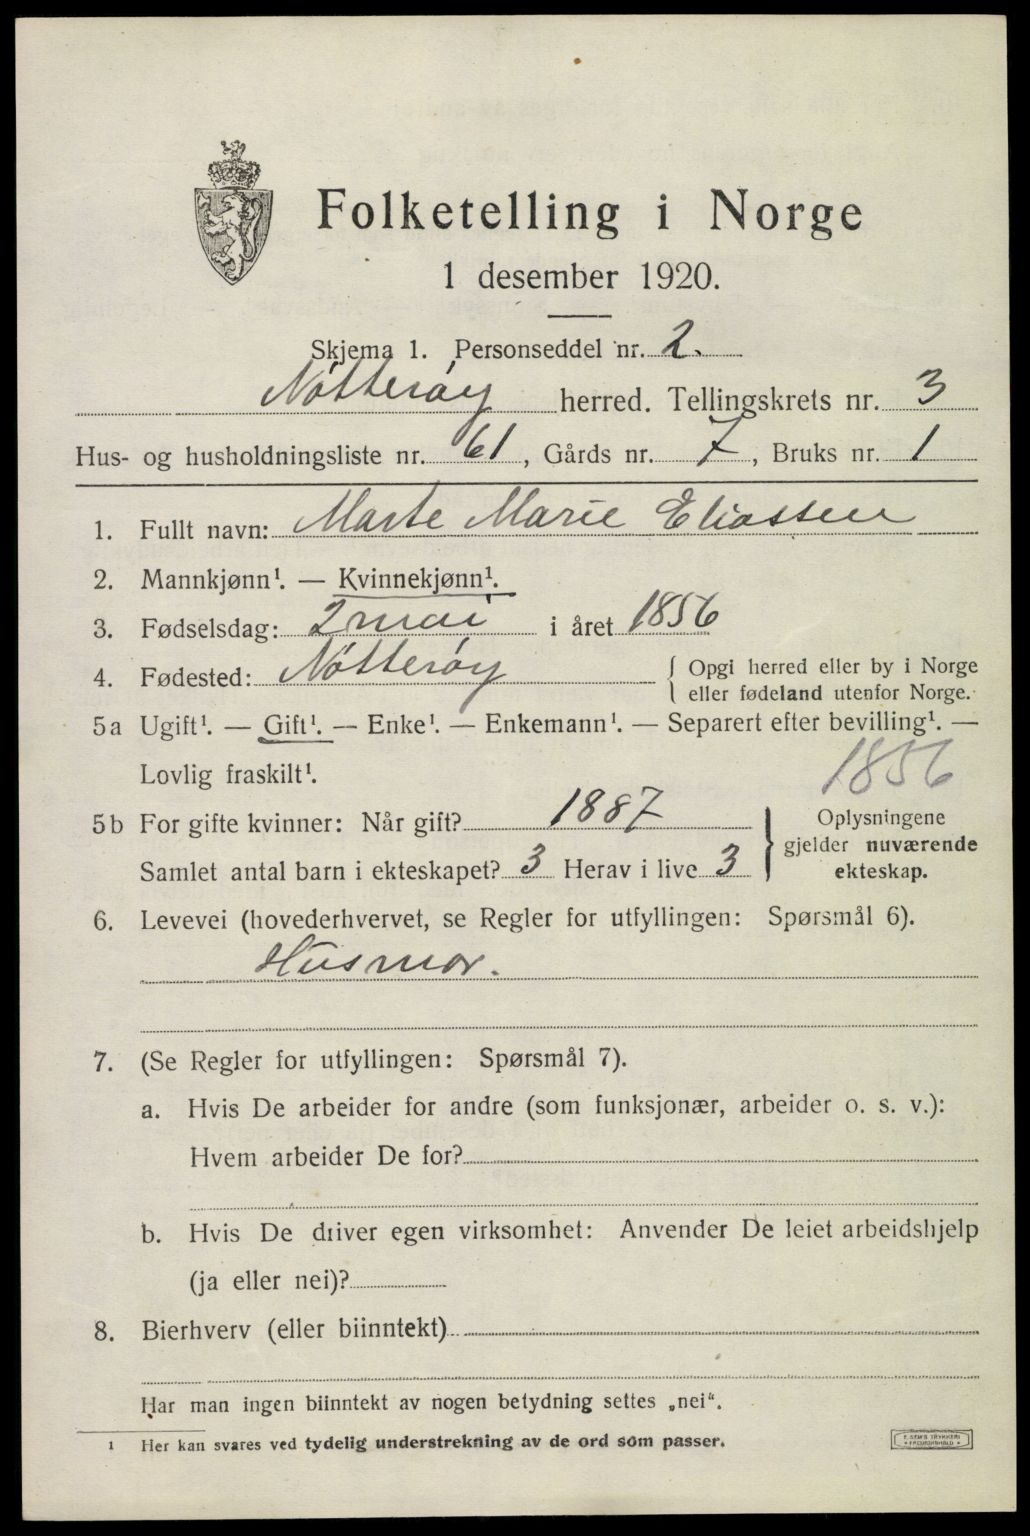 Folketelling i Norge
1 desember 1920.
Skjema 1. Personseddel nr. 2.
Nötterøy herred. Tellingskrets nr. 3
Hus- og husholdningsliste nr. 61, Gårds nr. 7, Bruks nr. 1
1. Fullt navn: Marte Marie Eliassen
2. Mannkjønn¹. — Kvinnekjønn¹.
3. Fødselsdag: 2 mai i året 1856
4. Fødested: Nötterøy { Opgi herred eller by i Norge
eller fødeland utenfor Norge.
5a Ugift¹. — Gift¹. — Enke¹. — Enkemann¹. — Separert efter bevilling¹. —
Lovlig fraskilt¹. 1856
5b For gifte kvinner: Når gift? 1887 } Oplysningene
gjelder nuværende
Samlet antal barn i ekteskapet? 3 Herav i live 3 ekteskap.
6. Levevei (hovederhvervet, se Regler for utfyllingen: Spørsmål 6).
Husmor.
7. (Se Regler for utfyllingen: Spørsmål 7).
a. Hvis De arbeider for andre (som funksjonær, arbeider o. s. v.):
Hvem arbeider De for?
b. Hvis De driver egen virksomhet: Anvender De leiet arbeidshjelp
(ja eller nei)?
8. Bierhverv (eller biinntekt)
Har man ingen biinntekt av nogen betydning settes „nei“.
¹ Her kan svares ved tydelig understrekning av de ord som passer.